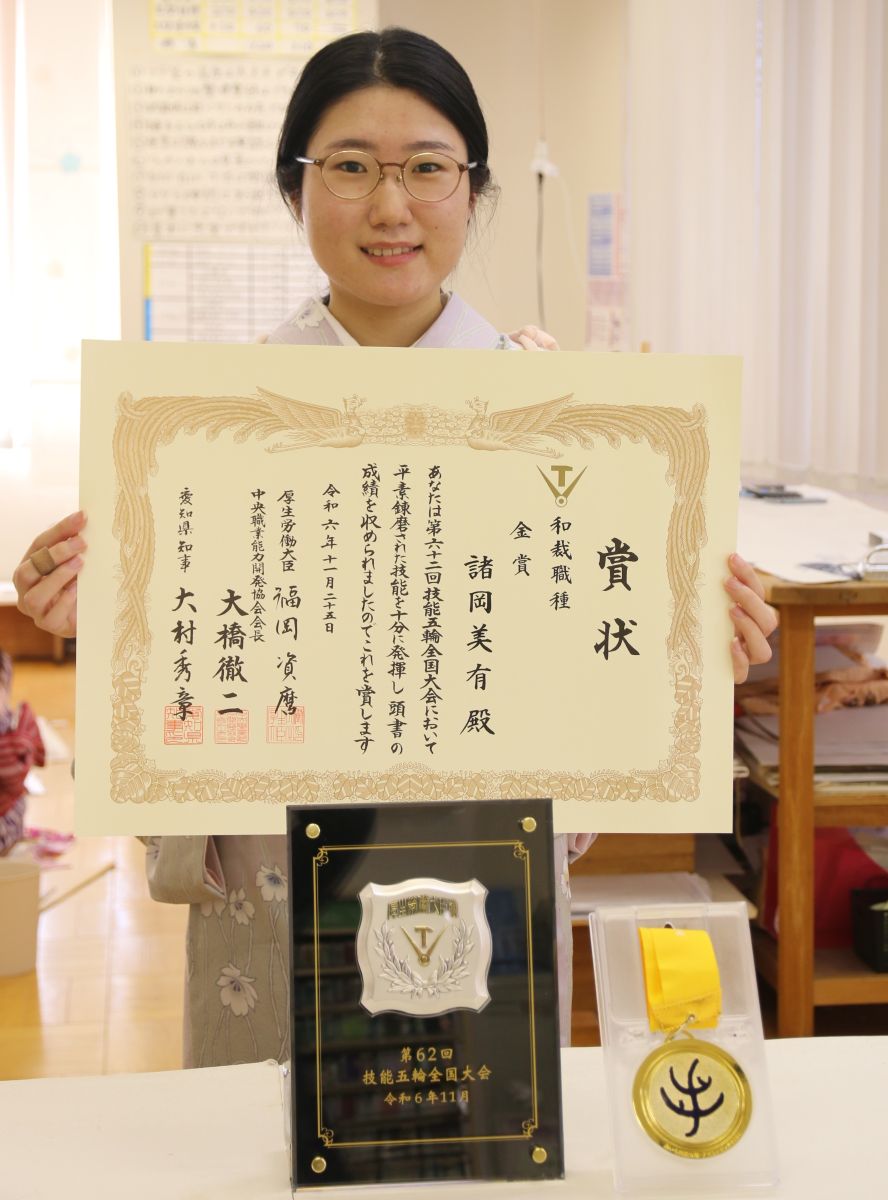 賞状
和裁職種
金賞
諸岡美有殿
あなたは第六十二回技能五輪全国大会において
平素錬磨された技能を十分に発揮し頭書の
成績を収められましたのでこれを賞します
令和六年十一月二十五日
厚生労働大臣 福岡資麿
中央職業能力開発協会会長 大橋徹二
愛知県知事 大村秀章
厚生労働大臣賞
第62回
技能五輪全国大会
令和6年11月